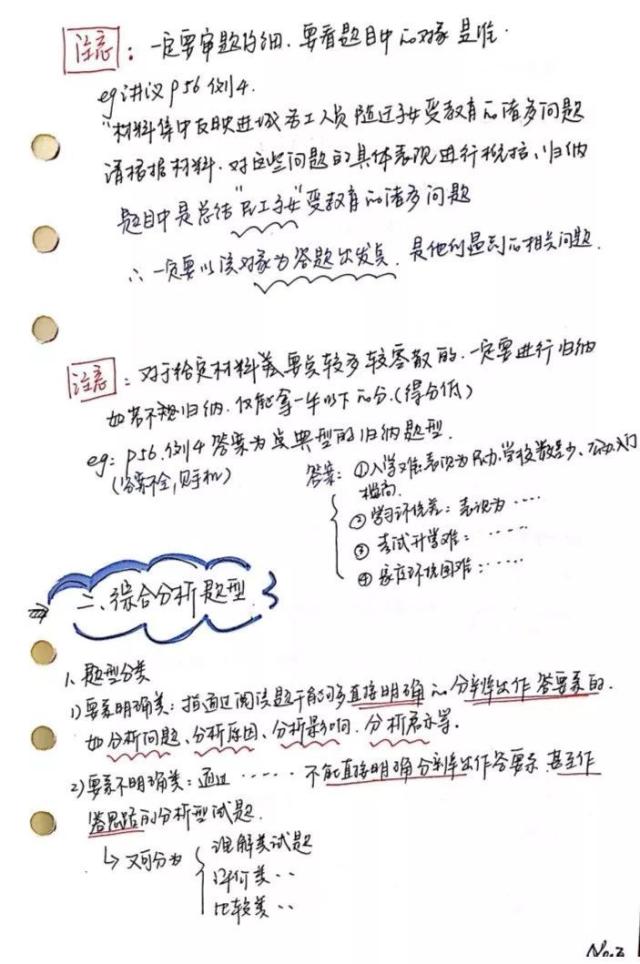 注意：一定要审题仔细，要看题目中的对象是谁.
eg讲义P56例4.
"材料集中反映进城务工人员随迁子女受教育的诸多问题
请根据材料，对这些问题的具体表现进行概括、归纳
题目中是总结"民工子女"受教育的诸多问题
∴一定要以该对象为答题出发点，是他们遇到的相关问题.
注意：对于给定材料 要点较多较零散的，一定要进行归纳
如若不归纳，仅能拿一半以下的分.(得分低)
eg：P56.例4答案为 典型的归纳题型.
(答案不全,见手机)
答案：①入学难：表现为 学校数量少、入门
槛高.
②学习环境差：表现为……
③考试升学难：……
④家庭环境困难：……
二、综合分析题型
1、题型分类
1)要素明确类：指通过阅读题干能够直接明确的分辨出作答要素的.
如分析问题、分析原因、分析影响、分析启示等.
2)要素不明确类：通过……不能直接明确分辨出作答要素，甚至作
答思路的分析型试题.
↳又可分为
理解类试题
评价类··
比较类··
No.3